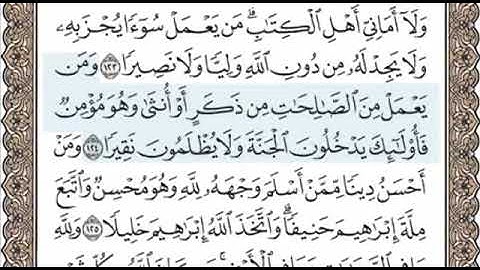 وَلَآ أَمَانِيِّ أَهْلِ ٱلْكِتَٰبِ ۗ مَن يَعْمَلْ سُوٓءًا يُجْزَ بِهِۦ
وَلَا يَجِدْ لَهُۥ مِن دُونِ ٱللَّهِ وَلِيًّا وَلَا نَصِيرًا ١٢٣ وَمَن
يَعْمَلْ مِنَ ٱلصَّٰلِحَٰتِ مِن ذَكَرٍ أَوْ أُنثَىٰ وَهُوَ مُؤْمِنٌ
فَأُو۟لَٰٓئِكَ يَدْخُلُونَ ٱلْجَنَّةَ وَلَا يُظْلَمُونَ نَقِيرًا ١٢٤ وَمَنْ
أَحْسَنُ دِينًا مِّمَّنْ أَسْلَمَ وَجْهَهُۥ لِلَّهِ وَهُوَ مُحْسِنٌ وَٱتَّبَعَ
مِلَّةَ إِبْرَٰهِيمَ حَنِيفًا ۗ وَٱتَّخَذَ ٱللَّهُ إِبْرَٰهِيمَ خَلِيلًا ١٢٥ وَلِلَّهِ